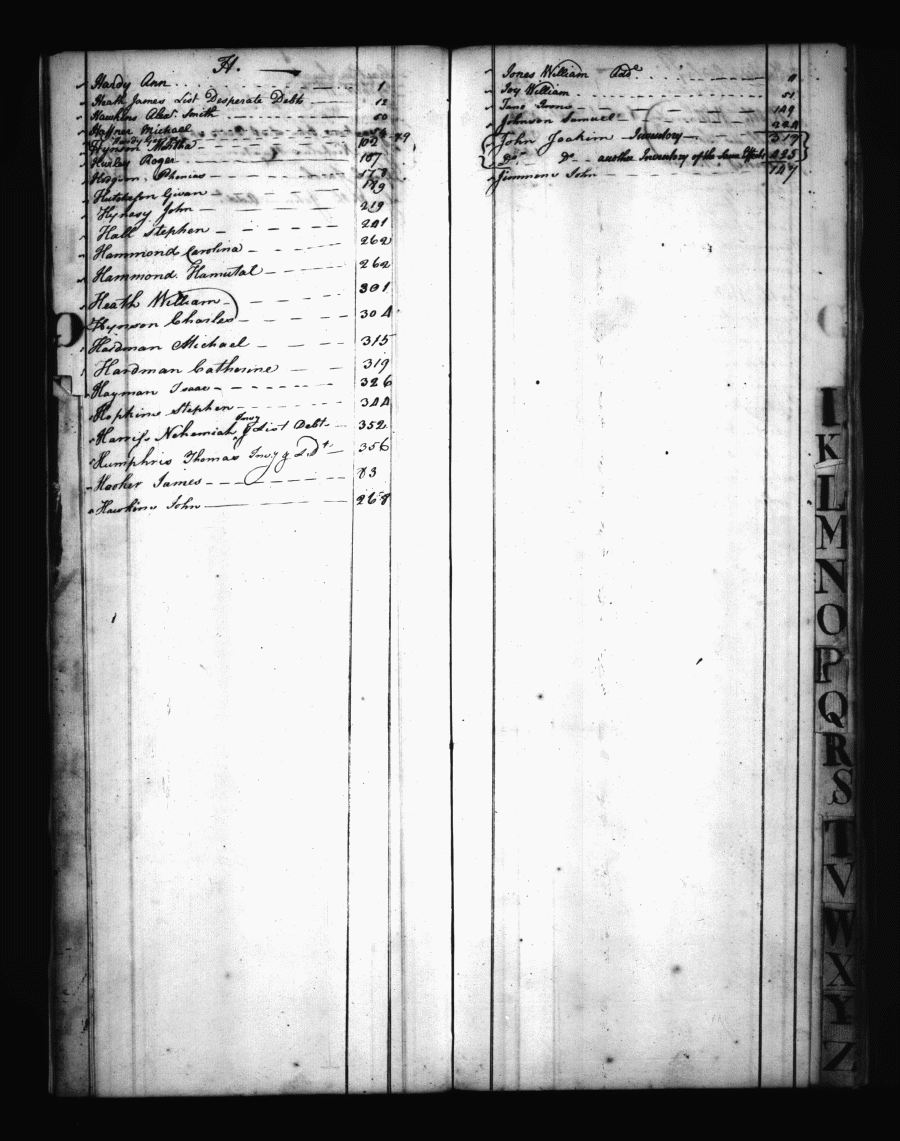 H.
Hardy Ann 1
Heath James List Desperate Debts 12
Hawkins Alexr. Smith 50
Haffner Michael 54
Hynson Martha 102 49
Hurley Roger 107
Hodgson Phenias 178
Hutcheson Givan 179
Hynesy John 219
Hall Stephen 241
Hammond Carolina 262
Hammond Hamutal 262
Heath William 301
Hynson Charles 304
Hardman Michael 315
Hardman Catherine 319
Hayman Isaac 326
Hopkins Stephen 344
Harriss Nehemiah Invy & List Debt 352
Humphris Thomas Invy & L Dt 356
Hooker James 83
Hawkins John 268
Jones William Addl 11
Joy William 51
149
Johnson Samuel 224
John Joakim Inventory 319
Do. Do. another Inventory of the same Effects 425
Jimmson John 147
I
K
L
M
N
O
P
Q
R
S
T
V
W
X
Y
Z